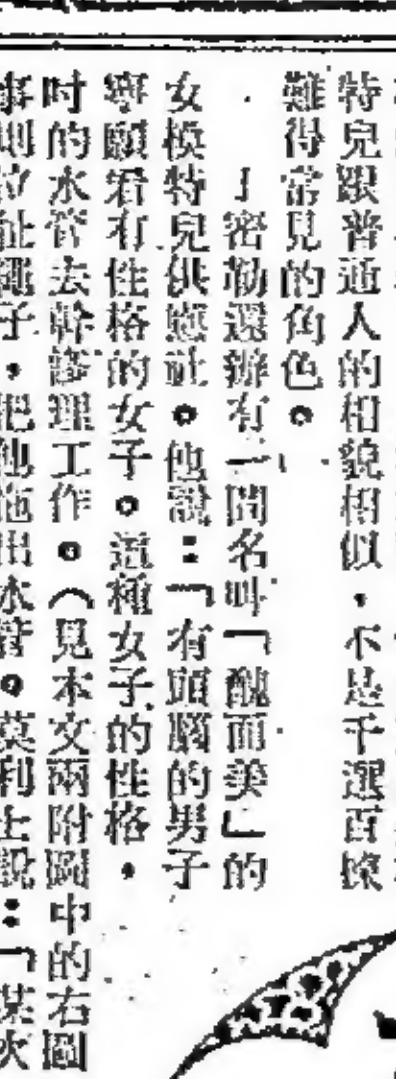 特兒跟普通人的相貌相似，不是千選百揀
難得常見的角色。
丁密勒還辦有一間名叫「醜而美」的
女模特兒供應社。他說：「有頭腦的男子
寧願看有性格的女子。這種女子的性格，
吋的水管去幹修理工作。（見本文兩附圖中的右圖
子，把他拖出水管。莫利士說：「某次